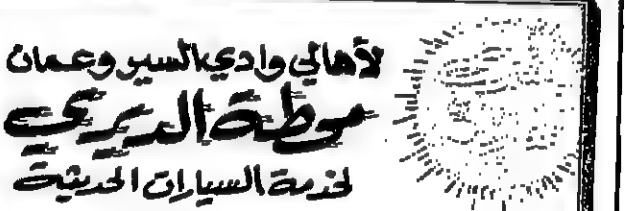 لأهالي وادي السير وعمان
محطة الديري
لخدمة السيارات الحديثة